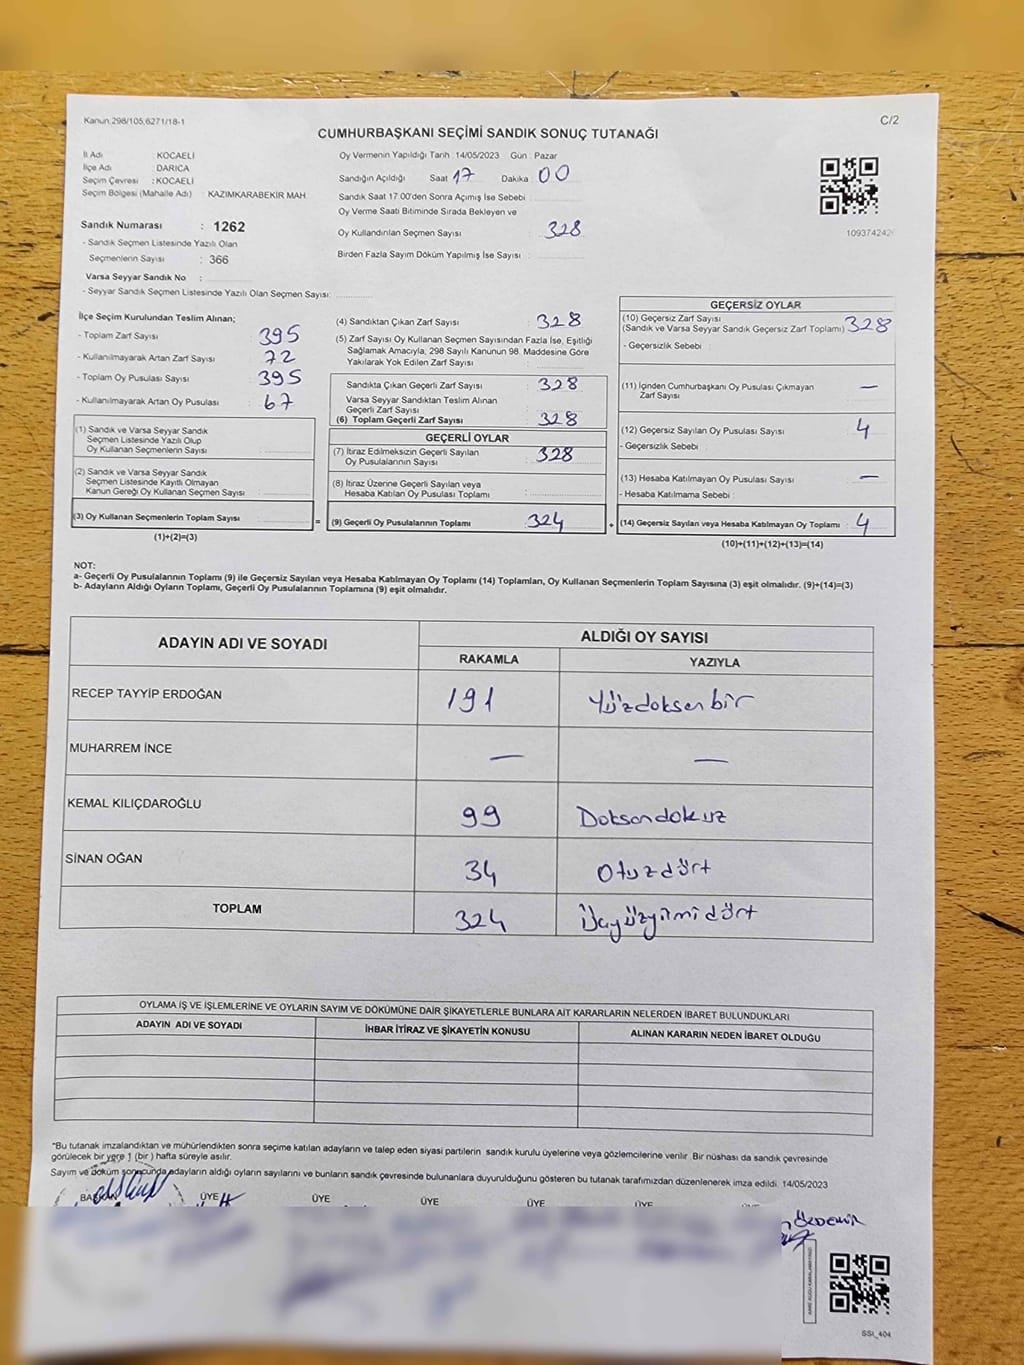 Kanun:298/105,6271/18-1
C/2
CUMHURBAŞKANI SEÇİMİ SANDIK SONUÇ TUTANAĞI
İl Adı : KOCAELİ
İlçe Adı : DARICA
Seçim Çevresi : KOCAELİ
Seçim Bölgesi (Mahalle Adı) : KAZIMKARABEKİR MAH
Sandık Numarası : 1262
- Sandık Seçmen Listesinde Yazılı Olan
Seçmenlerin Sayısı : 366
Varsa Seyyar Sandık No :
- Seyyar Sandık Seçmen Listesinde Yazılı Olan Seçmen Sayısı:
Oy Vermenin Yapıldığı Tarih :14/05/2023 Gün : Pazar
Sandığın Açıldığı Saat 17 Dakika 00
Sandık Saat 17:00'den Sonra Açımış İse Sebebi
Oy Verme Saati Bitiminde Sırada Bekleyen ve
Oy Kullandırılan Seçmen Sayısı : 328
Birden Fazla Sayım Döküm Yapılmış İse Sayısı :
109374242
İlçe Seçim Kurulundan Teslim Alınan;
- Toplam Zarf Sayısı : 395
- Kullanılmayarak Artan Zarf Sayısı : 72
- Toplam Oy Pusulası Sayısı : 395
- Kullanılmayarak Artan Oy Pusulası : 67
(1) Sandık ve Varsa Seyyar Sandık
Seçmen Listesinde Yazılı Olup
Oy Kullanan Seçmenlerin Sayısı :
(2) Sandık ve Varsa Seyyar Sandık
Seçmen Listesinde Kayıtlı Olmayan
Kanun Gereği Oy Kullanan Seçmen Sayısı :
(3) Oy Kullanan Seçmenlerin Toplam Sayısı :
(1)+(2)=(3)
(4) Sandıktan Çıkan Zarf Sayısı : 328
(5) Zarf Sayısı Oy Kullanan Seçmen Sayısından Fazla İse, Eşitliği
Sağlamak Amacıyla, 298 Sayılı Kanunun 98. Maddesine Göre
Yakılarak Yok Edilen Zarf Sayısı :
Sandıkta Çıkan Geçerli Zarf Sayısı : 328
Varsa Seyyar Sandıktan Teslim Alınan
Geçerli Zarf Sayısı :
(6) Toplam Geçerli Zarf Sayısı : 328
GEÇERLİ OYLAR
(7) İtiraz Edilmeksizin Geçerli Sayılan
Oy Pusulalarının Sayısı : 328
(8) İtiraz Üzerine Geçerli Sayılan veya
Hesaba Katılan Oy Pusulası Toplamı :
= (9) Geçerli Oy Pusulalarının Toplamı : 324
GEÇERSİZ OYLAR
(10) Geçersiz Zarf Sayısı
(Sandık ve Varsa Seyyar Sandık Geçersiz Zarf Toplamı) 328
- Geçersizlik Sebebi :
(11) İçinden Cumhurbaşkanı Oy Pusulası Çıkmayan
Zarf Sayısı : —
(12) Geçersiz Sayılan Oy Pusulası Sayısı : 4
- Geçersizlik Sebebi :
(13) Hesaba Katılmayan Oy Pusulası Sayısı : —
- Hesaba Katılmama Sebebi :
+ (14) Geçersiz Sayılan veya Hesaba Katılmayan Oy Toplamı : 4
(10)+(11)+(12)+(13)=(14)
NOT:
a- Geçerli Oy Pusulalarının Toplamı (9) ile Geçersiz Sayılan veya Hesaba Katılmayan Oy Toplamı (14) Toplamları, Oy Kullanan Seçmenlerin Toplam Sayısına (3) eşit olmalıdır. (9)+(14)=(3)
b- Adayların Aldığı Oyların Toplamı, Geçerli Oy Pusulalarının Toplamına (9) eşit olmalıdır.
ADAYIN ADI VE SOYADI
ALDIĞI OY SAYISI
RAKAMLA YAZIYLA
RECEP TAYYİP ERDOĞAN 191 Yüzdoksanbir
MUHARREM İNCE — —
KEMAL KILIÇDAROĞLU 99 Doksandokuz
SİNAN OĞAN 34 Otuzdört
TOPLAM 324 Üçyüzyirmidört
OYLAMA İŞ VE İŞLEMLERİNE VE OYLARIN SAYIM VE DÖKÜMÜNE DAİR ŞİKAYETLERLE BUNLARA AİT KARARLARIN NELERDEN İBARET BULUNDUKLARI
ADAYIN ADI VE SOYADI İHBAR İTİRAZ VE ŞİKAYETİN KONUSU ALINAN KARARIN NEDEN İBARET OLDUĞU
*Bu tutanak imzalandıktan ve mühürlendikten sonra seçime katılan adayların ve talep eden siyasi partilerin sandık kurulu üyelerine veya gözlemcilerine verilir. Bir nüshası da sandık çevresinde
görülecek bir yere 1 (bir) hafta süreyle asılır.
Sayım ve döküm sonucunda adayların aldığı oyların sayılarını ve bunların sandık çevresinde bulunanlara duyurulduğunu gösteren bu tutanak tarafımızdan düzenlenerek imza edildi. 14/05/2023
BAŞKAN ÜYE ÜYE ÜYE ÜYE ÜYE
ÖZDEMİR
SSI_404